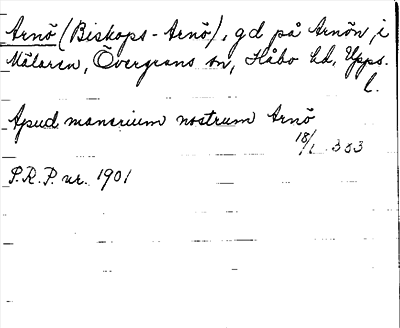 Arnö (Biskops-Arnö), gd på Arnön, i
Mälaren, Övergrans sn, Håbo hd, Upps.
l.
Apud manerium nostrum Arnö
18/1 333
P.R.P. nr. 1901